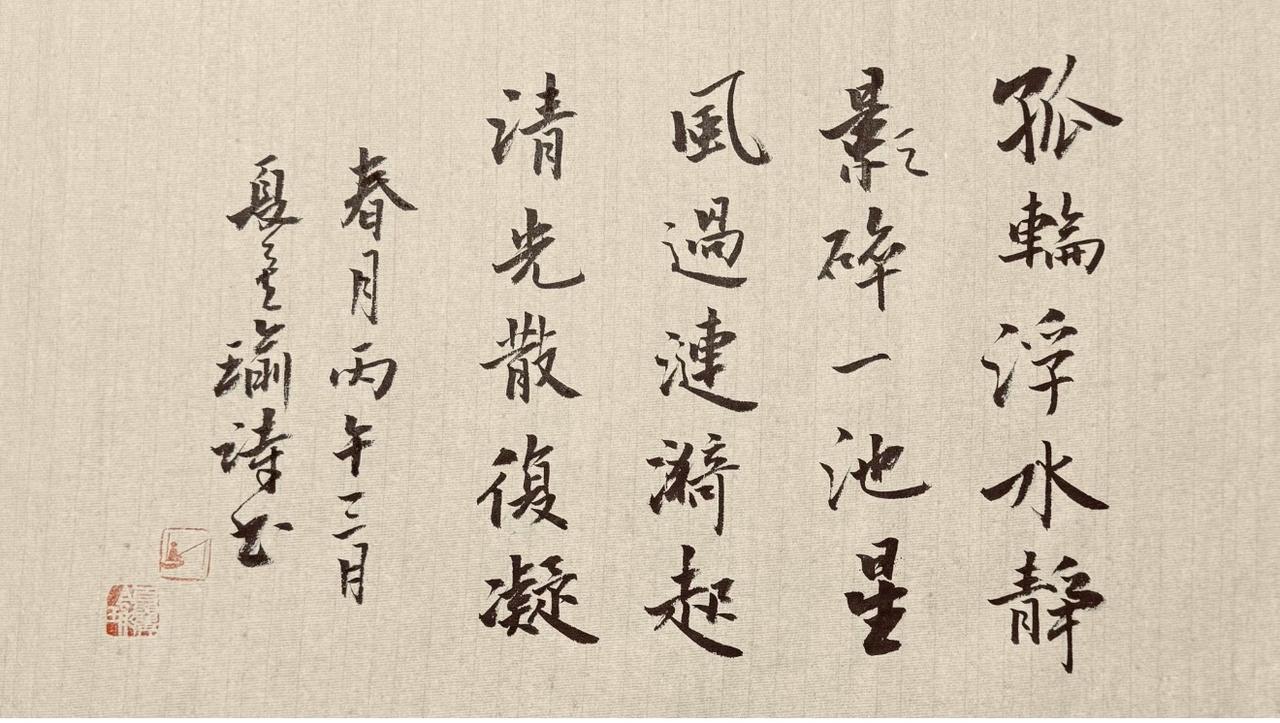 孤輪浮水靜
影碎一池星
風過漣漪起
清光散復凝
春月丙午三月
夏瑜詩书